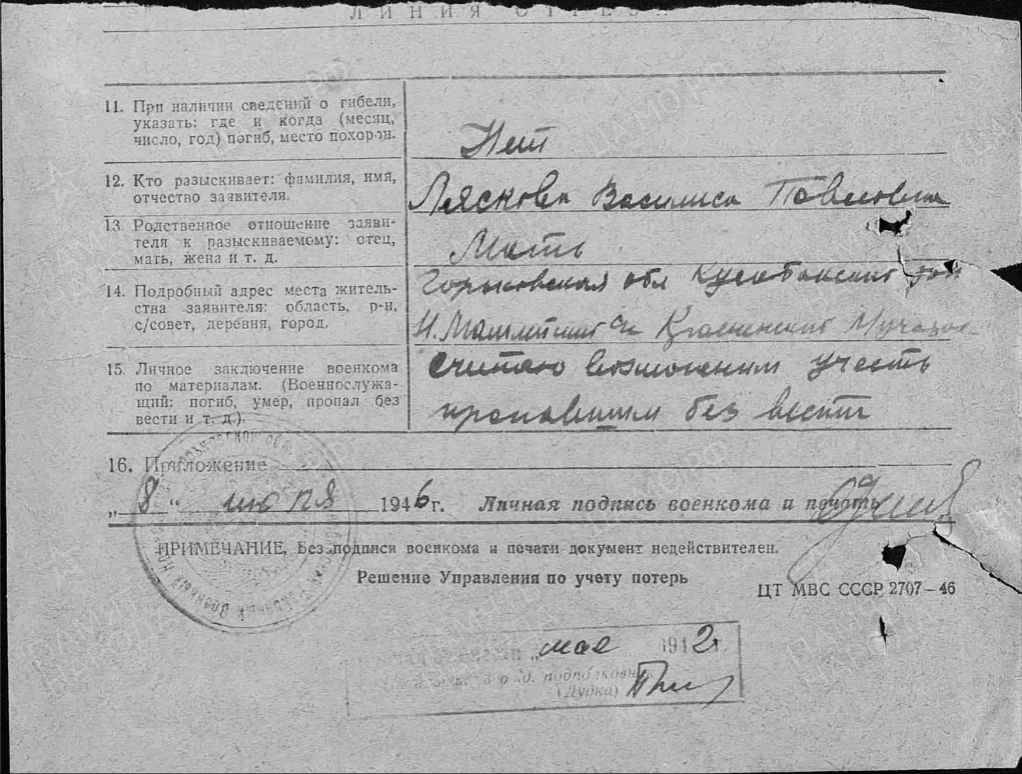 ЛИНИЯ ОТРЕЗА
11. При наличии сведений о гибели,
указать: где и когда (месяц,
число, год) погиб, место похорон.
Нет
12. Кто разыскивает: фамилия, имя,
отчество заявителя.
Ляскова Василиса Павловна
13. Родственное отношение заяви-
теля к разыскиваемому: отец,
мать, жена и т. д.
Мать
14. Подробный адрес места житель-
ства заявителя: область, р-н,
с/совет, деревня, город.
Горьковская обл
15. Личное заключение военкома
по материалам. (Военнослужа-
щий: погиб, умер, пропал без
вести и т. д.).
считаю возможным учесть
пропавшим без вести
16. Приложение
„8“ июля 1946г. Личная подпись военкома и печать
ПРИМЕЧАНИЕ. Без подписи военкома и печати документ недействителен.
Решение Управления по учету потерь
ЦТ МВС СССР 2707—46
мае 1942г.
подполковник
(Дудка)